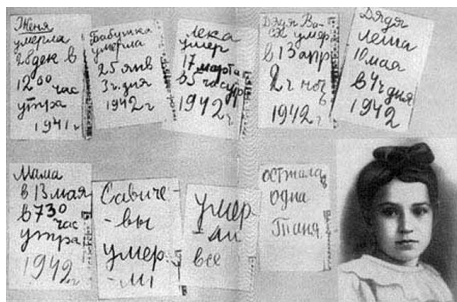 Женя
умерла
28 дек в
12 00 час
утра
1941 г
Бабушка
умерла
25 янв
3 ч. дня
1942 г
Лека
умер
17 марта
в 5 час утр
1942 г
Дядя Ва-
ся умер
в 13 апр
2 ч ноч
1942 г
Дядя
Леша
10 мая
в 4 ч дня
1942
Мама
в 13 мая
в 7 30
час
утра
1942 г
Савиче-
-вы
умер-
-ли
умер
-ли
все
осталась
одна
Таня